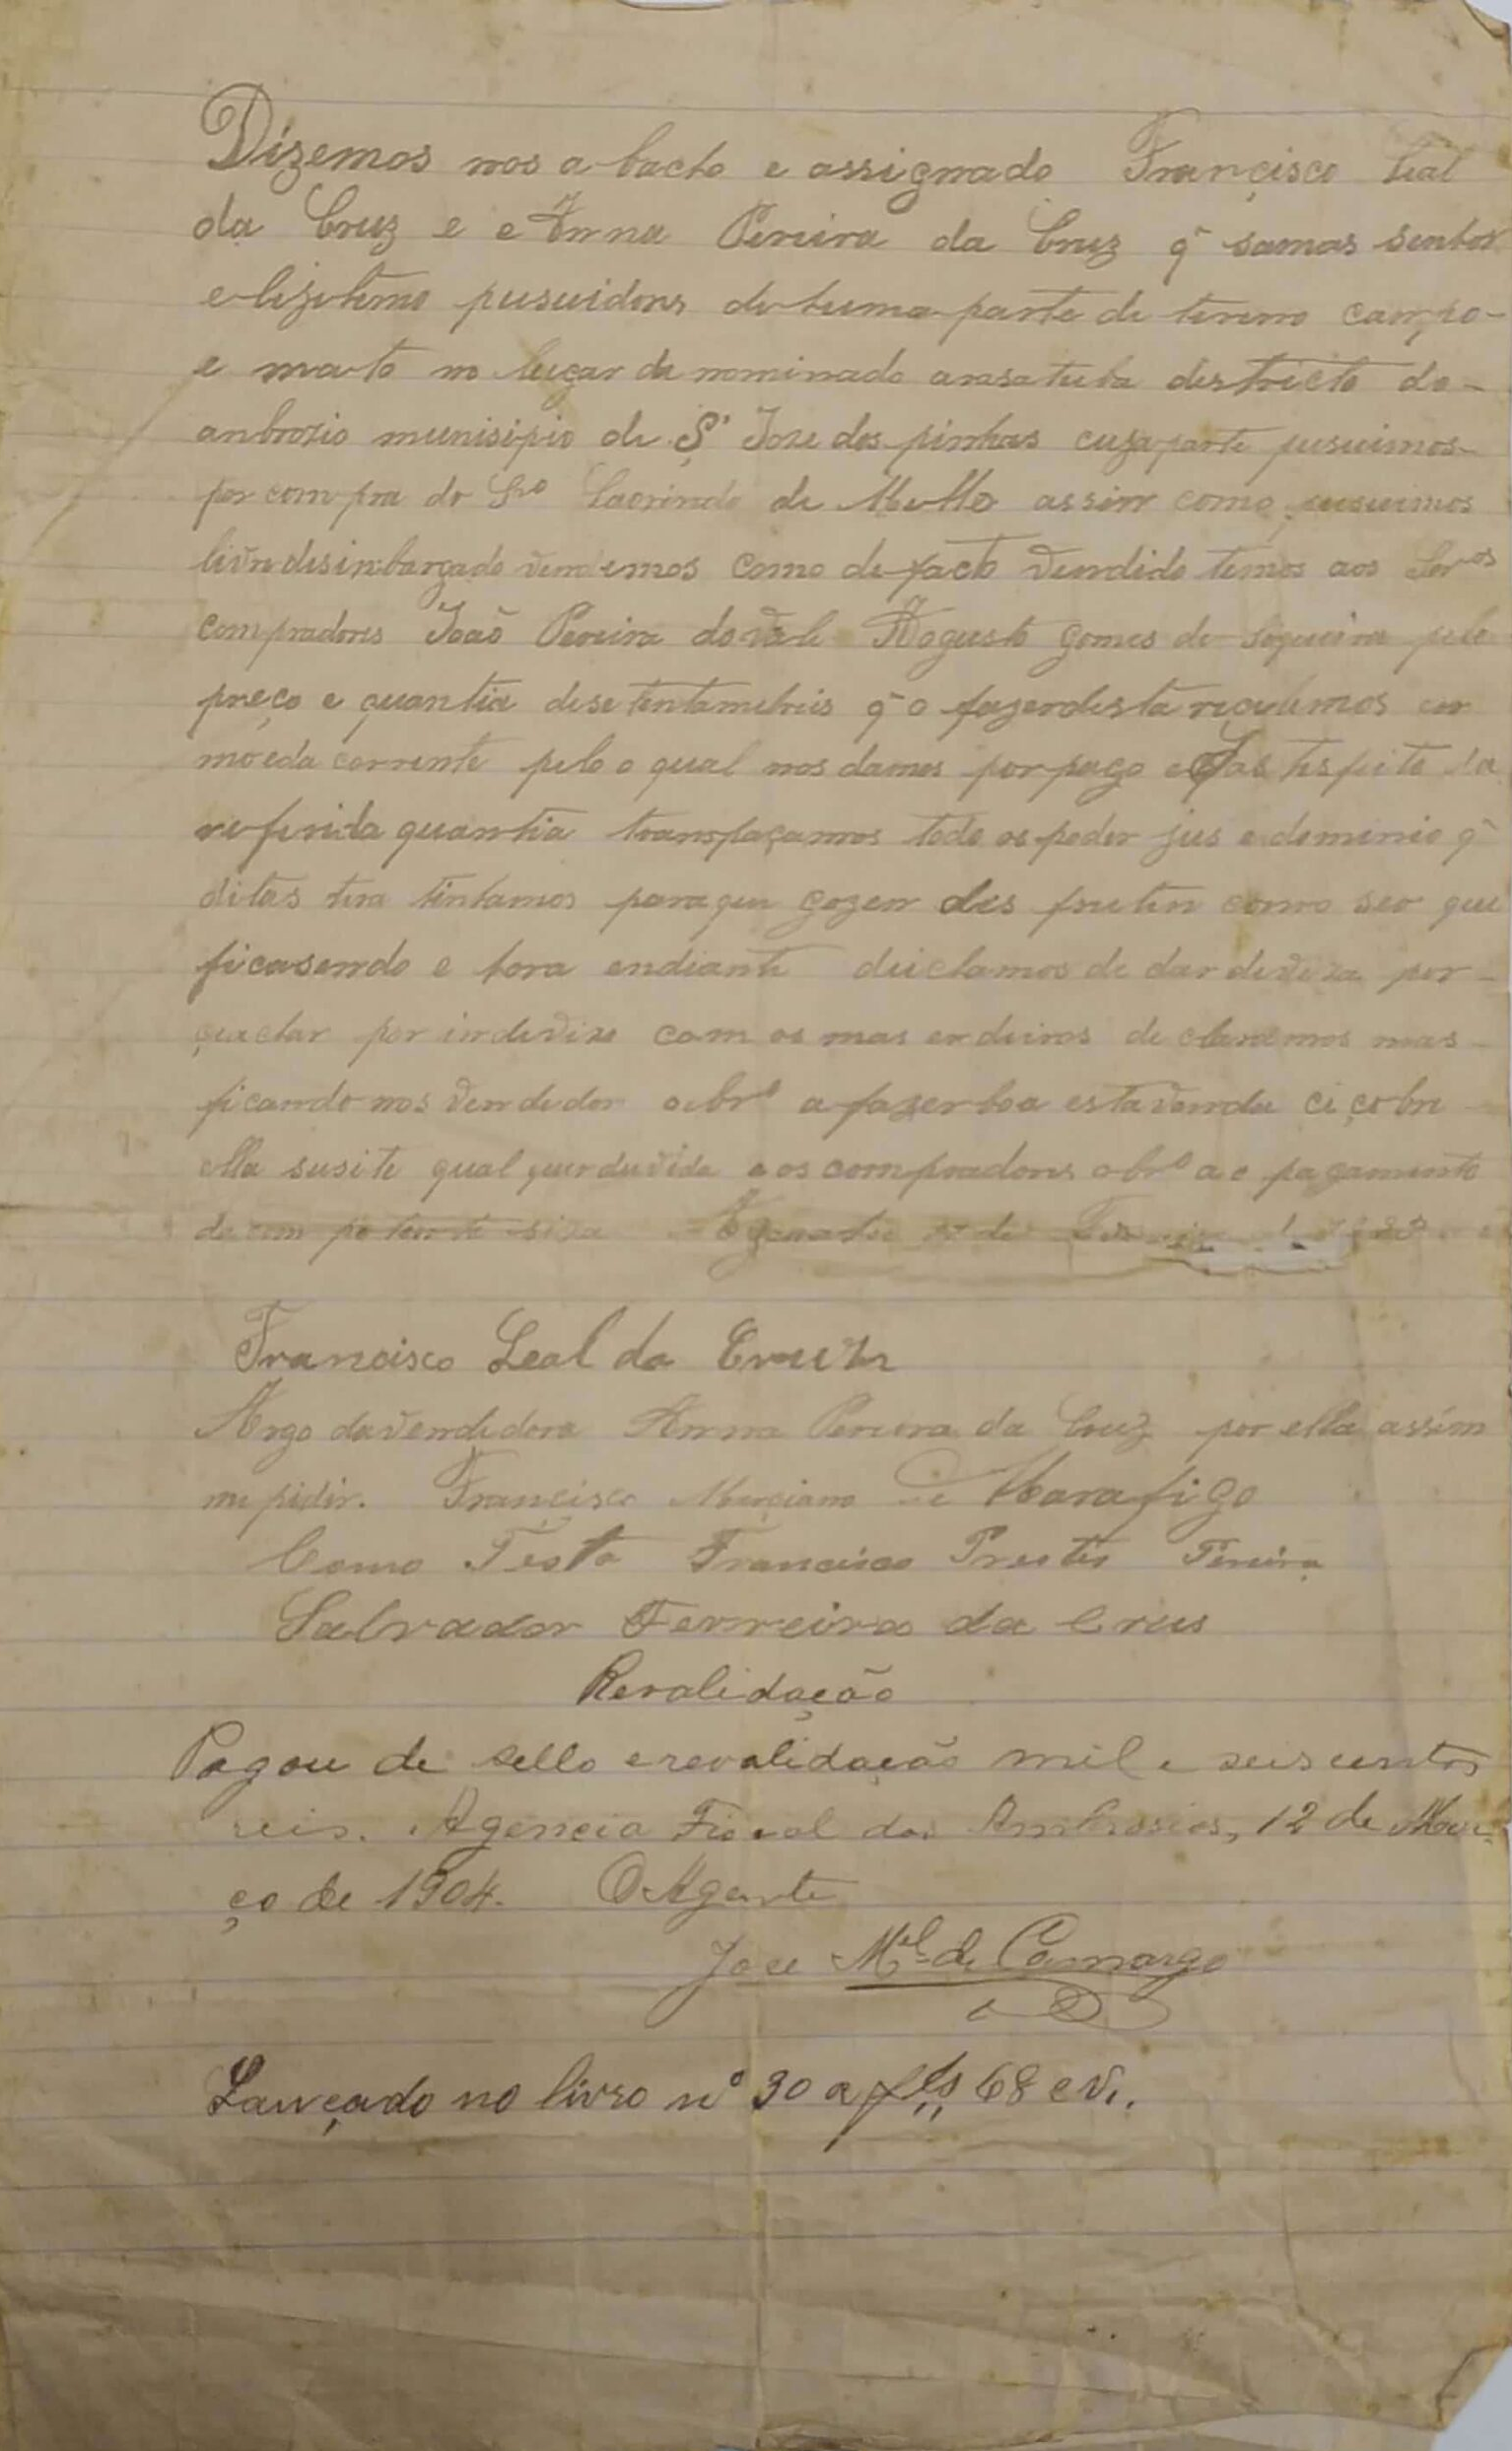 Dizemos nos a bacho e assignado Françisco Leal
da Cruz e e Anna Pereira da Cruz q̃ samas senhor
e lizitimo pusuidores de huma parte de tereno campo-
e mato no luçar de nominado arasatuba destricto do-
anbrozio munisipio de S. Joze dos pinhas cuza parte pusuimos-
por com pra do Snro Laorindo de Mello assim como pusuimos
livre desinbarçado vendemos como de facto vendido temos aos Snros
compradores João Pereira do Vale Augusto Gomes de Sequeira pelo
preço e quantia de setenta mil reis q̃ o fazer desta recebemos em
moeda corrente pelo o qual nos damos por pago e Sastisfeito da
referida quantia transpaçamos todo os poder jus e dominio q̃
ditas tera tinhamos para que gozen des fruten como seo que
fica sendo e hora endiante deichamos de dar deviza por-
que char por indevizo com os mas erdeiros de claramos mas-
ficando nos vendedor obro a fazer boa esta venda ci çobre
ella susite qual quer duvida e os compradores obro ao pagamento
da com pe tente siza
Francisco Leal da Cruz
Argo da vendedora Anna Pereira da Cruz por ella assim
me pidir. Francisco Marçiano de Marafigo
Como Testa Francisco Prestes Pereira
Salvador Ferreira da Crus
Revalidação
Pagou de sello e revalidação mil e seis centos
reis. Agencia Fiscal dos Ambrosios, 12 de Mar-
ço de 1904. O Agente
Jose Mel de Camargo
Lançado no livro nº 30 a fls 68 e v.